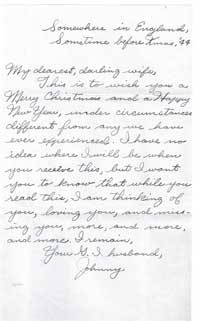 Somewhere in England,
Sometime before Xmas, '44
My dearest, darling wife,
This is to wish you a
Merry Christmas and a Happy
New Year, under circumstances
different from any we have
ever experienced. I have no
idea where I will be when
you receive this, but I want
you to know that while you
read this, I am thinking of
you, loving you, and miss-
ing you, more, and more,
and more. I remain,
Your G. I. husband,
Johnny